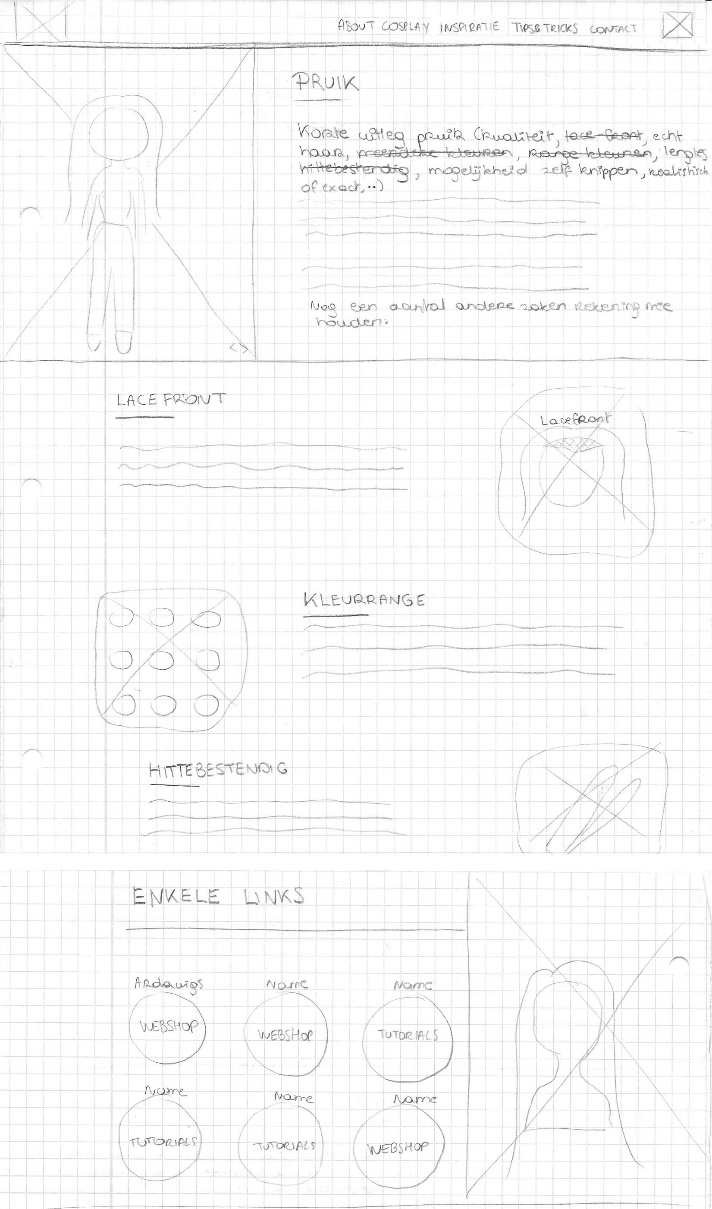 ABOUT COSPLAY INSPIRATIE TIPS&TRICKS CONTACT
PRUIK
Korte uitleg pruik (kwaliteit, lace-front, echt
haar, meerdere kleuren, range kleuren, lengtes
hittebestendig, mogelijkheid zelf knippen, realistisch
of exact,..)
Nog een aantal andere zaken rekening mee
houden.
<>
LACE FRONT
Lacefront
KLEURRANGE
HITTEBESTENDIG
ENKELE LINKS
Ardawigs Name Name
WEBSHOP WEBSHOP TUTORIALS
Name Name Name
TUTORIALS TUTORIALS WEBSHOP